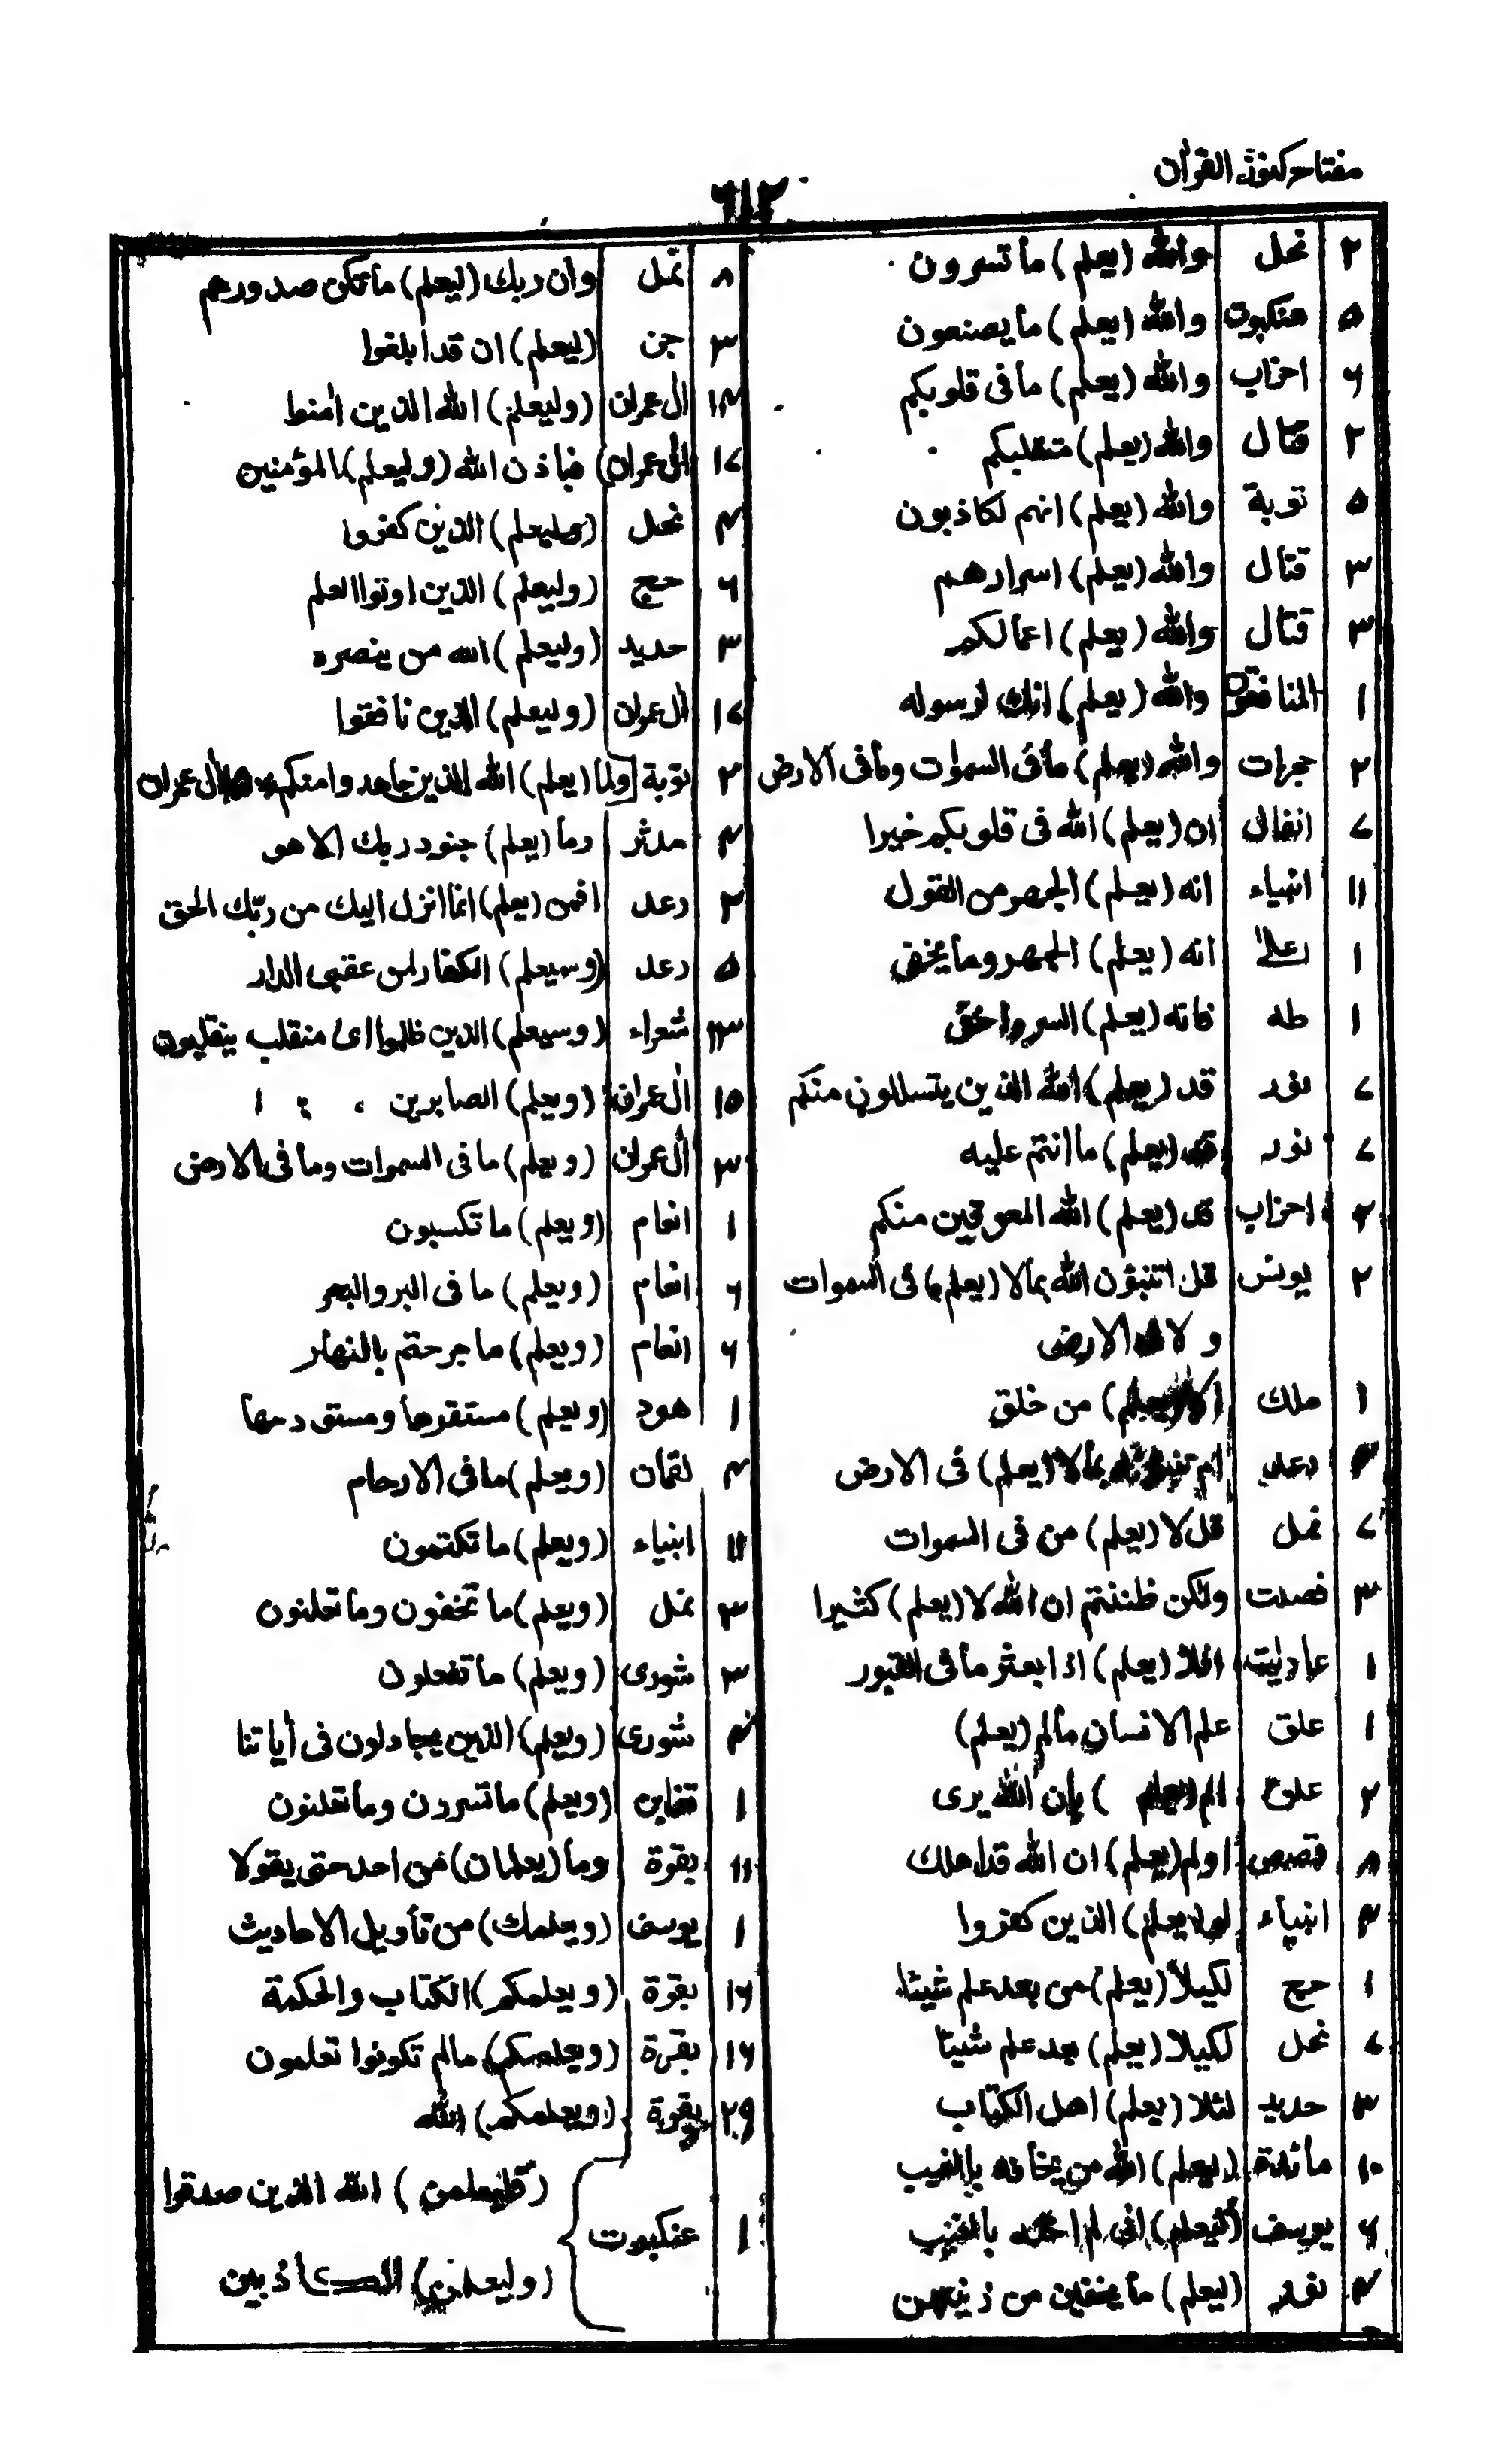 مفتاح كنوز القرآن
٦١٢
٢ نحل والله (يعلم) ما تسرون
٥ عنكبوت والله (يعلم) ما يصنعون
٦ احزاب والله (يعلم) ما فى قلوبكم
٢ قتال والله (يعلم) متقلبكم
٥ توبة والله (يعلم) انهم لكاذبون
٣ قتال والله (يعلم) اسرارهم
٣ قتال والله (يعلم) اعمالكم
١ المنافقون والله (يعلم) انك لرسوله
٢ حجرات والله (يعلم) ما فى السموات وما فى الارض
٧ انفال ان (يعلم) الله فى قلوبكم خيرا
١١ انبياء انه (يعلم) الجهر من القول
١ اعلى انه (يعلم) الجهر وما يخفى
١ طه فانه (يعلم) السر واخفى
٧ نور قد (يعلم) الله الذين يتسللون منكم
٧ نور قد (يعلم) ما انتم عليه
٢ احزاب قد (يعلم) الله المعوقين منكم
٢ يونس قل اتنبؤن الله بما لا (يعلم) فى السموات
و لا فى الارض
١ ملك الا (يعلم) من خلق
رعد ام تنبؤنه بما لا (يعلم) فى الارض
٧ نمل قل لا (يعلم) من فى السموات
٣ فصلت ولكن ظننتم ان الله لا (يعلم) كثيرا
١ عاديات افلا (يعلم) اذا بعثر ما فى القبور
١ علق علم الانسان مالم (يعلم)
٢ علق الم (يعلم) بان الله يرى
٨ قصص اولم (يعلم) ان الله قد اهلك
٣ انبياء لو (يعلم) الذين كفروا
١ حج لكيلا (يعلم) من بعد علم شيئا
٧ نحل لكيلا (يعلم) بعد علم شيئا
٣ حديد لئلا (يعلم) اهل الكتاب
١٠ مائدة (ليعلم) الله من يخافه بالغيب
٦ يوسف (ليعلم) انى لم اخنه بالغيب
٤ نور (ليعلم) ما يخفين من زينتهن
٨ نمل وان ربك (ليعلم) ما تكن صدورهم
٣ جن (ليعلم) ان قد ابلغوا
١٤ ال عمران (وليعلم) الله الذين امنوا
١٧ ال عمران فباذن الله (وليعلم) المؤمنين
٤ نحل (وليعلم) الذين كفروا
٦ حج (وليعلم) الذين اوتوا العلم
٣ حديد (وليعلم) الله من ينصره
١٧ ال عمران (وليعلم) الذين نافقوا
٢ توبة ولما (يعلم) الله الذين جاهدوا منكم ال عمران
٤ مدثر وما (يعلم) جنود ربك الا هو
٢ رعد افمن (يعلم) انما انزل اليك من ربك الحق
٥ رعد (وسيعلم) الكفار لمن عقبى الدار
شعراء (وسيعلم) الذين ظلموا اى منقلب ينقلبون
١٥ ال عمران (ويعلم) الصابرين
٣ ال عمران (ويعلم) ما فى السموات وما فى الارض
١ انعام (ويعلم) ما تكسبون
٦ انعام (ويعلم) ما فى البر والبحر
٦ انعام (ويعلم) ما جرحتم بالنهار
١ هود (ويعلم) مستقرها ومستودعها
٤ لقمان (ويعلم) ما فى الارحام
١١ انبياء (ويعلم) ما تكتمون
٣ نمل (ويعلم) ما تخفون وما تعلنون
٣ شورى (ويعلم) ما تفعلون
٤ شورى (ويعلم) الذين يجادلون فى أياتنا
١ تغابن (ويعلم) ما تسرون وما تعلنون
١١ بقرة وما (يعلمان) من احد حتى يقولا
١ يوسف (ويعلمك) من تأويل الاحاديث
١٦ بقرة (ويعلمكم) الكتاب والحكمة
١٦ بقرة (ويعلمكم) مالم تكونوا تعلمون
٢٩ بقرة (ويعلمكم) الله
(فليعلمن) الله الذين صدقوا
١ عنكبوت
(وليعلمن) الكاذبين